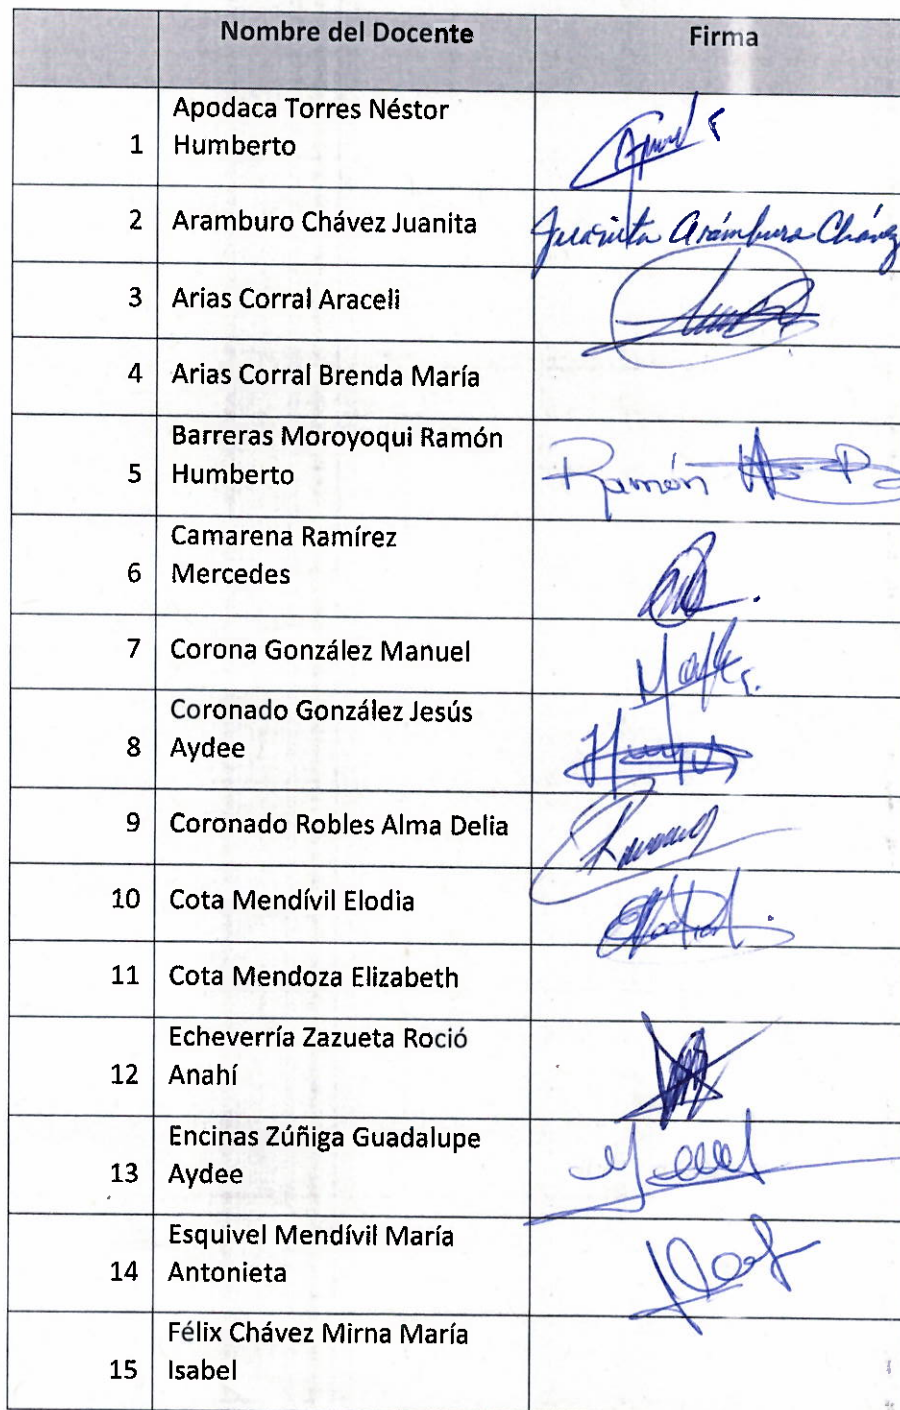 Nombre del Docente Firma
Apodaca Torres Néstor
1 Humberto
2 Aramburo Chávez Juanita Juanita Arámburo Chávez
3 Arias Corral Araceli
4 Arias Corral Brenda María
Barreras Moroyoqui Ramón
5 Humberto Ramón
Camarena Ramírez
6 Mercedes
7 Corona González Manuel
Coronado González Jesús
8 Aydee
9 Coronado Robles Alma Delia
10 Cota Mendívil Elodia
11 Cota Mendoza Elizabeth
Echeverría Zazueta Roció
12 Anahí
Encinas Zúñiga Guadalupe
13 Aydee
Esquivel Mendívil María
14 Antonieta
Félix Chávez Mirna María
15 Isabel